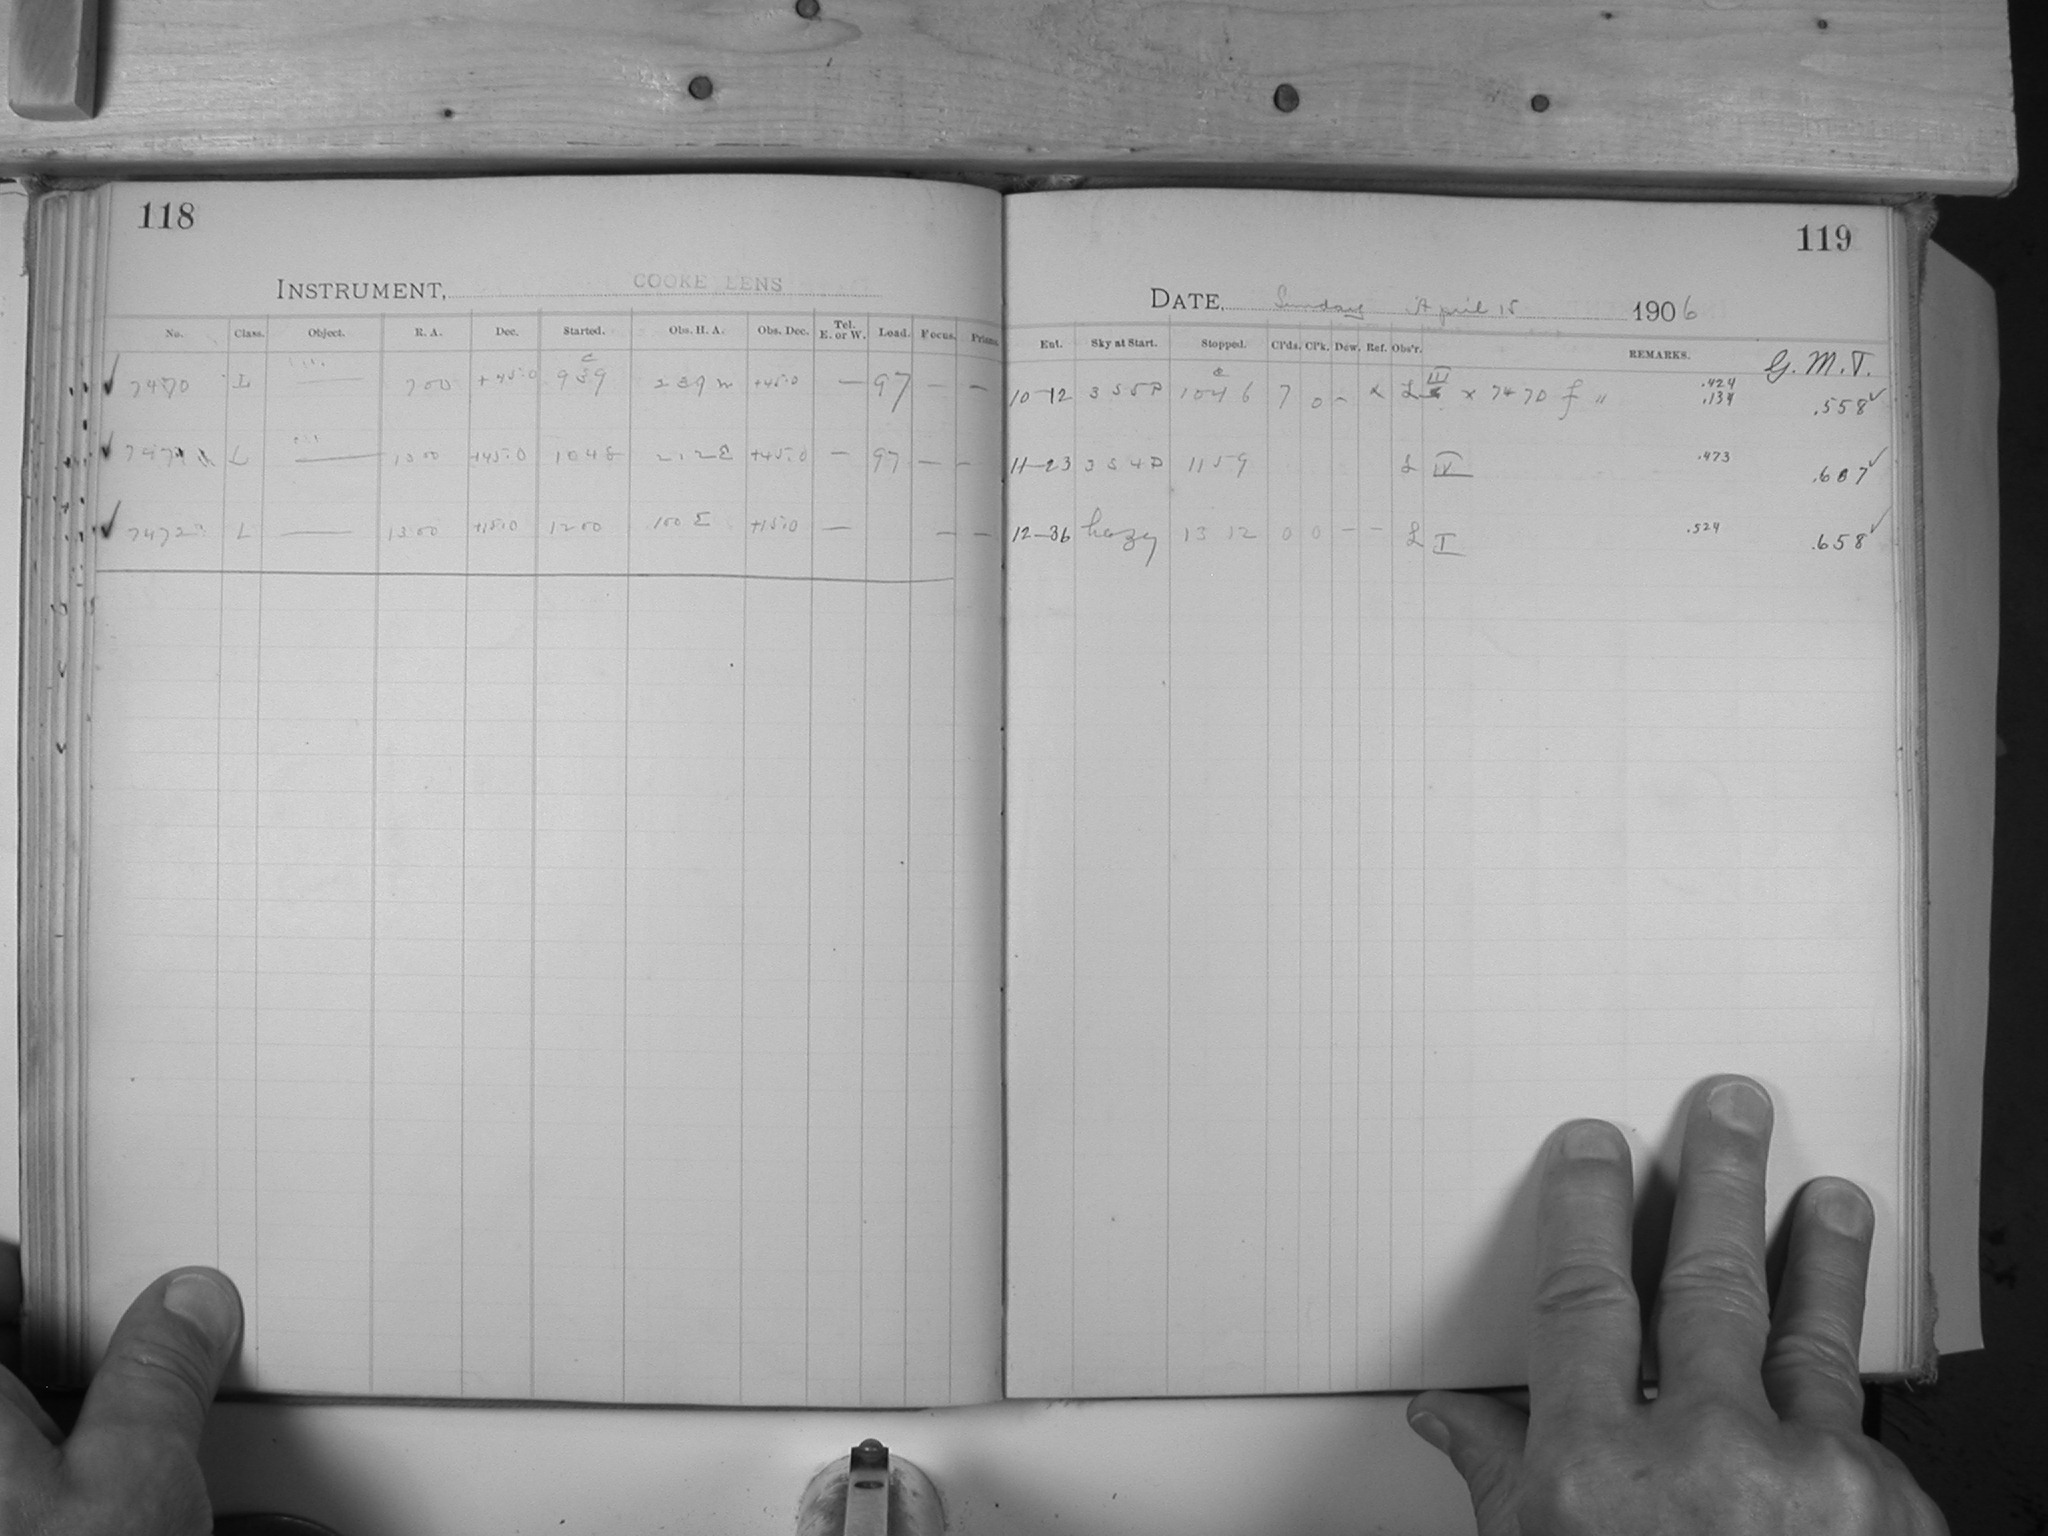 118
INSTRUMENT, COOKE LENS
No. Class. Object. R. A. Dec. Started. Obs. H. A. Obs. Dec. Tel. E. or W. Load. Focus. Prisms.
7470 L — 700 +45.0 939 239 W +45.0 — 97 — —
L — 1000 +45.0 1048 2 12 E +45.0 — 97 — —
7472 L — 1300 +15.0 1200 100 E +15.0 — — —
119
DATE, Sunday April 15 1906
Ent. Sky at Start. Stopped. Cl'ds. Cl'k. Dew. Ref. Obs'r. REMARKS. G. M. T.
10-12 3 S 5 P 1046 7 0 — L III x 7470 f " .424 .134 .558
11-23 3 S 4 P 1159 L IV .473 .607
12-36 hazy 13 12 0 0 — — L I .524 .658